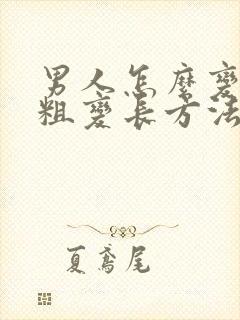 男人怎麼變
粗變長方法
夏鳶尾